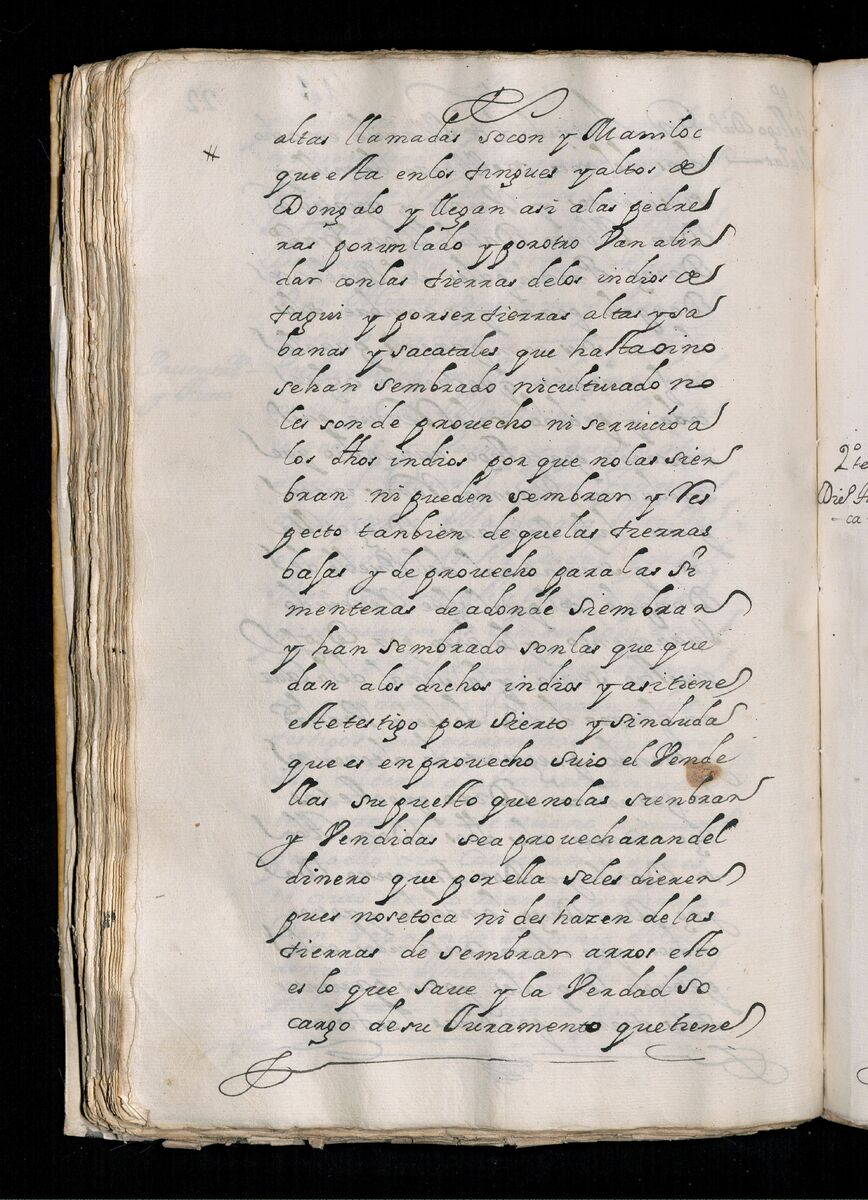 #
altas llamadas socon y Maniloc
que esta enlos tingues yaltos de
Dongalo y llegan asi alas pedre
ras porunlado yporotro Van alin
dar conlas tierras delos indios de
taqui y porser tierras altas ysa
banas ysacatales que hastaoino
sehan sembrado nicultiuado no
les son de prouecho ni seruicio a
los dhos indios por que nolas sien
bran ni pueden sembrar y Res
pecto tanbien de quelas tierras
baſas y de prouecho para las si
menteras de adonde siembran
y han sembrado sonlas que que
dan alos dichos indios yasitiene
estetestigo por sierto ysinduda
que es en prouecho suio el Vende
llas supuesto quenolas sienbran
y Vendidas sea prouecharan del
dinero que por ella seles dieren
pues nosetoca ni des hazen de las
tierras de sembrar arros esto
es lo que saue y la Verdad so
cargo desu Juramento que tiene
2º te